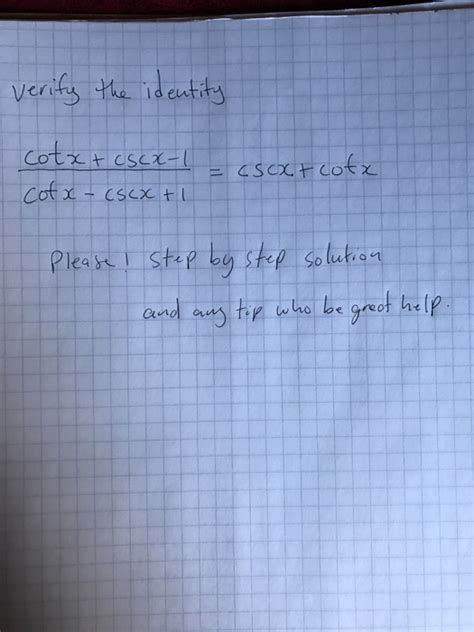 verify the identity
cotx + cscx-1
cotx - cscx +1
= cscx + cotx
Please! Step by step solution
and any tip who be great help.